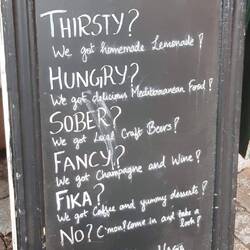 THIRSTY?
We got homemade Lemonade!
HUNGRY?
We got delicious Mediterranean Food!
SOBER?
We got Local Craft Beers!
FANCY?
We got Champagne and Wine!
FIKA?
We got Coffee and yummy desserts!
NO? C'mon! Come in and take a
look!